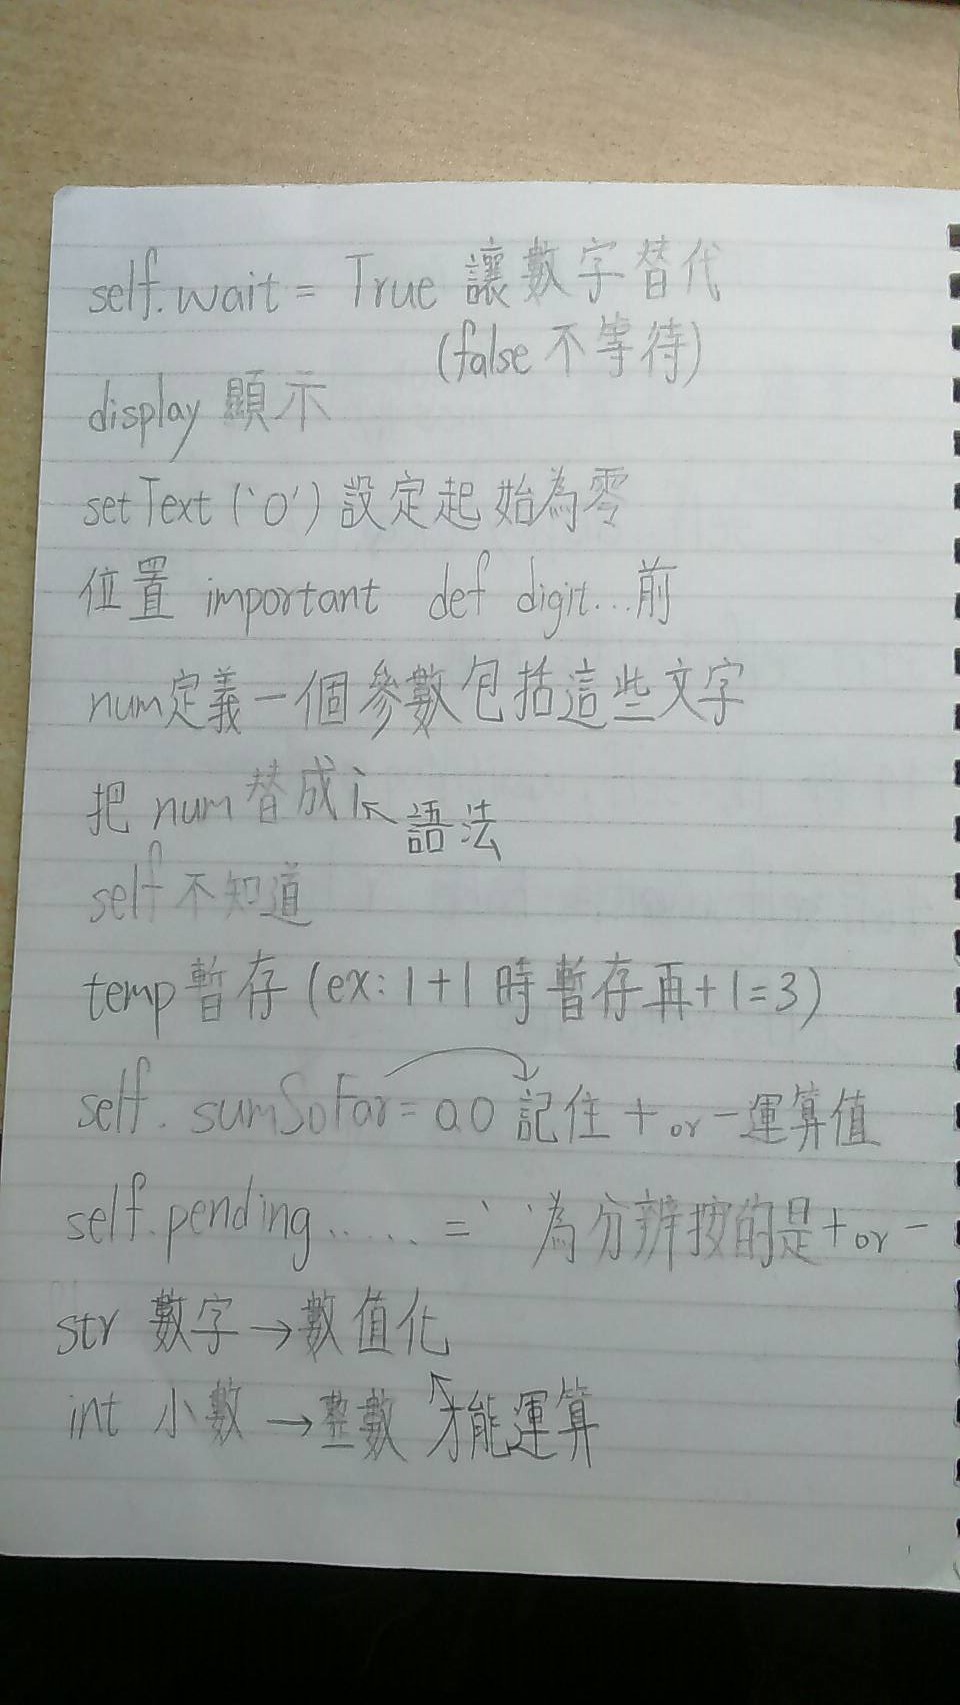 self.wait = True 讓數字替代
(false 不等待)
display 顯示
setText ('0') 設定起始為零
位置 important def digit...前
num定義一個參數包括這些文字
把 num 替成 i ↖ 語法
self 不知道
temp 暫存 (ex: 1+1 時暫存再+1=3)
self. sumSoFar = 0.0 記住 + or - 運算值
self.pending...... = ' ' 為分辨按的是+ or -
str 數字→數值化
int 小數→整數 ↖才能運算